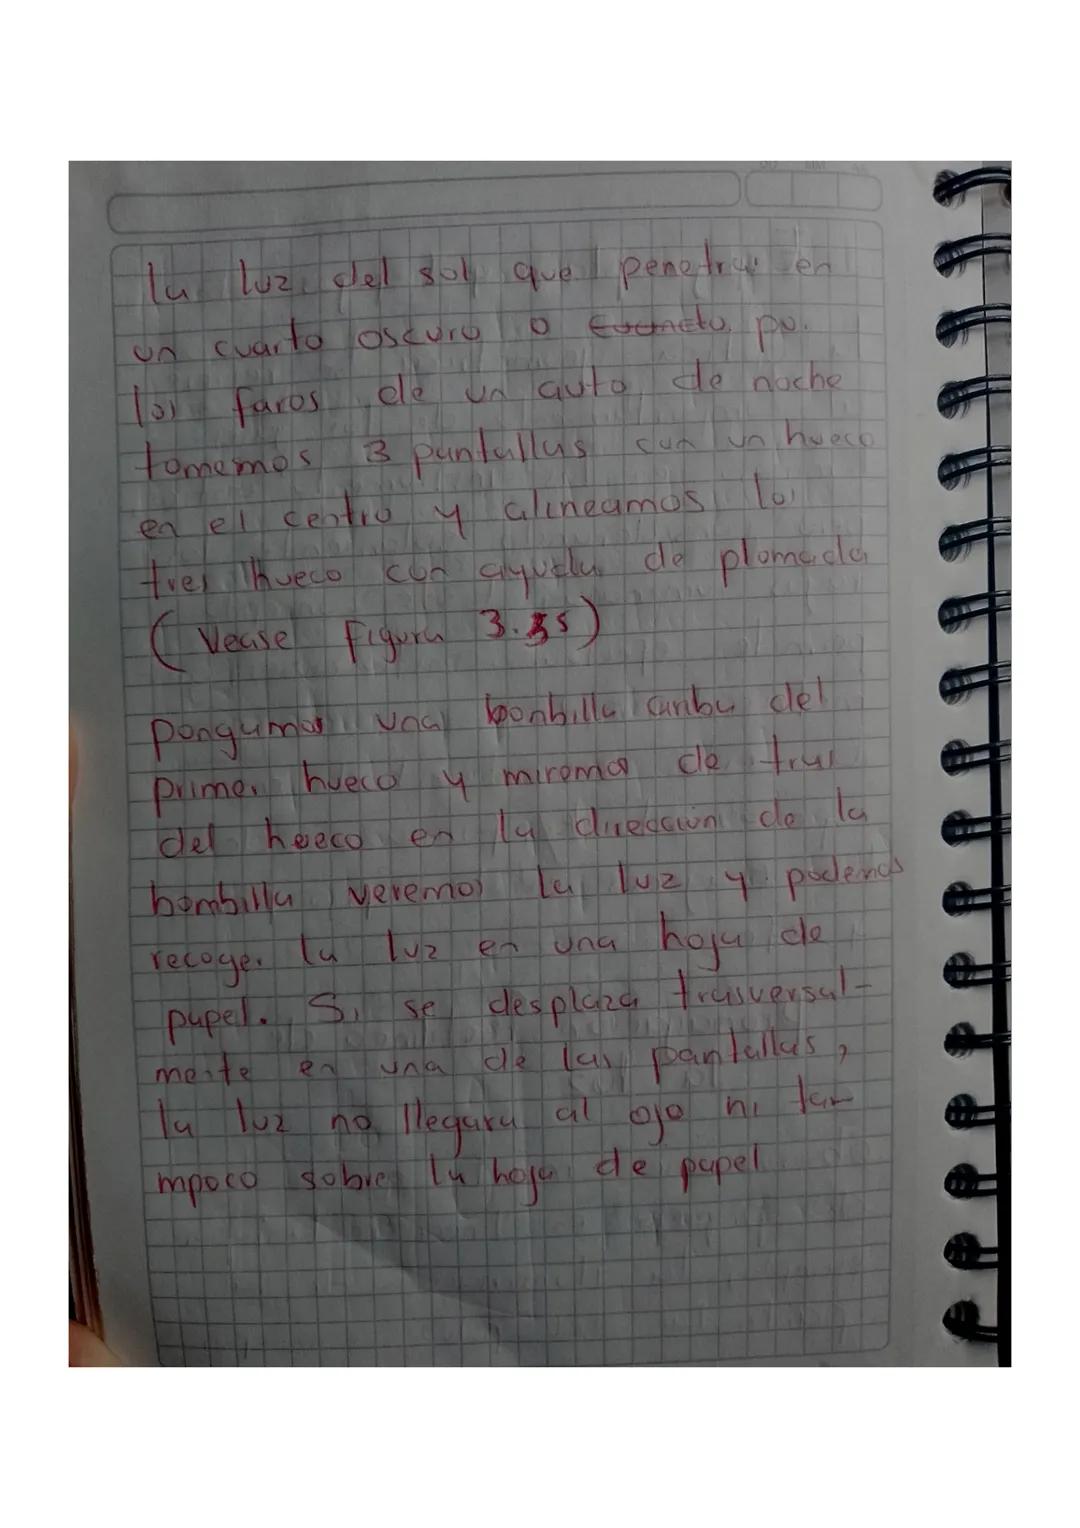 la luz del sol que penetra en
un cuarto oscuro o po.
los faros de un auto de noche
tomemos 3 pantallas con un hueco
en el centro y alineamos los
tres hueco con ayuda de plomada
(Vease Figura 3.35)
pongamos una bonbilla arriba del
primer hueco y miremos de tras
del hueco en la direccion de la
bombilla veremos la luz y podemos
recoger la luz en una hoja de
papel. Si se desplaza trasversal-
mente en una de las pantallas,
la luz no llegara al ojo ni tam
mpoco sobre la hoja de papel